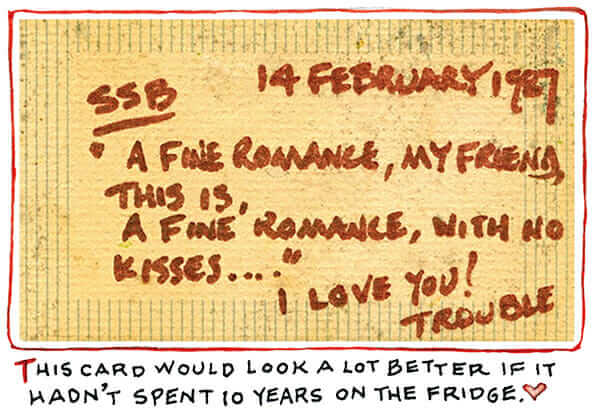 SSB
14 FEBRUARY 1987
" A FINE ROMANCE, MY FRIEND,
THIS IS,
A FINE ROMANCE, WITH NO
KISSES...."
I LOVE YOU!
TROUBLE
THIS CARD WOULD LOOK A LOT BETTER IF IT
HADN'T SPENT 10 YEARS ON THE FRIDGE.♥